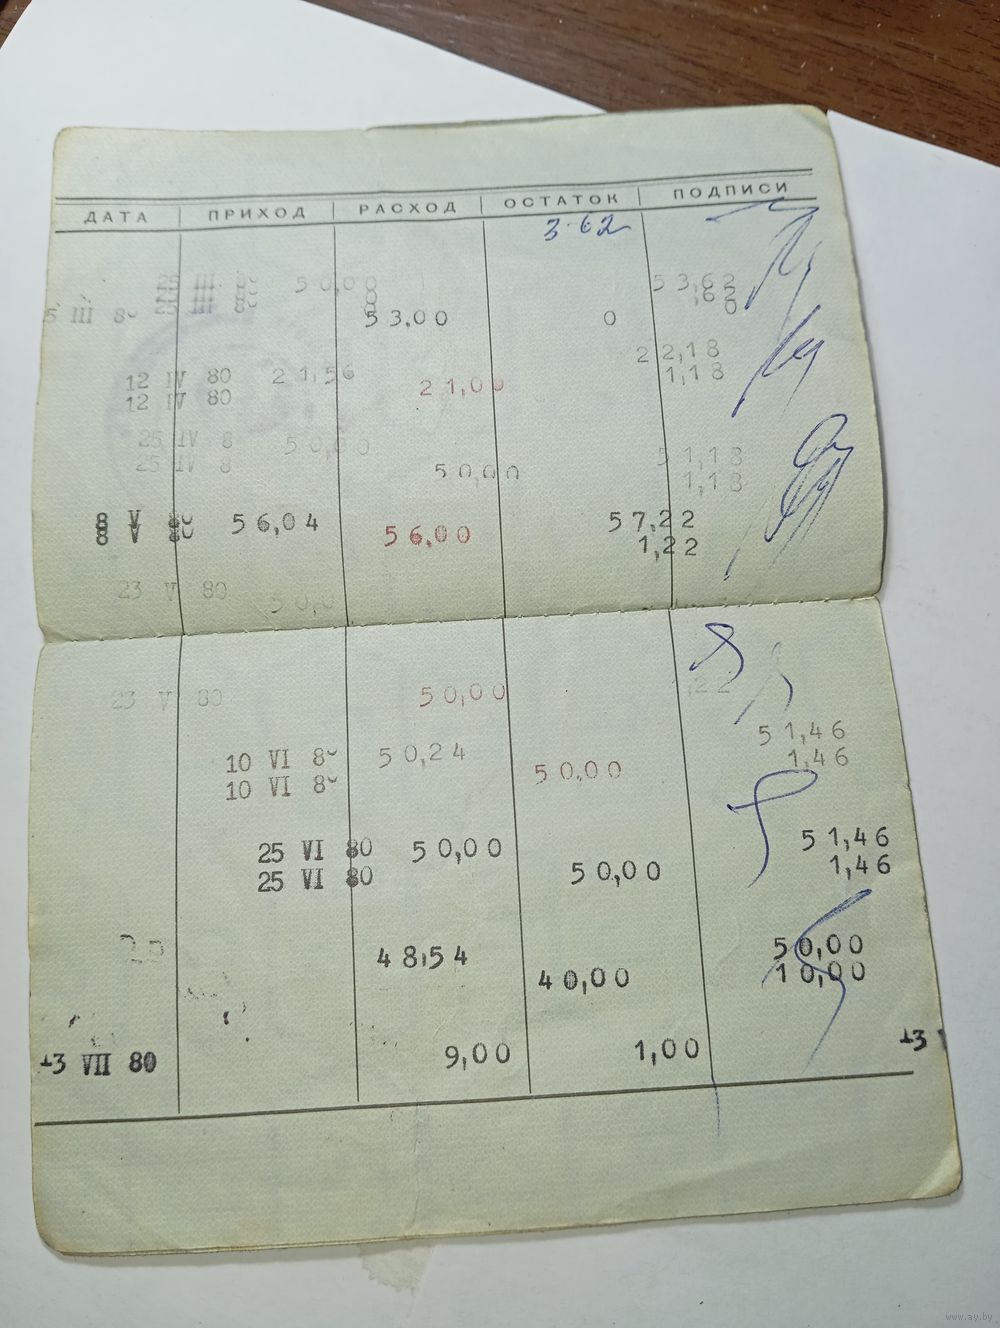 ДАТА ПРИХОД РАСХОД ОСТАТОК ПОДПИСИ
3-62
25 III 8 50,00 53,62
25 III 8
5 III 8 53,00 0
22,18
12 IV 80 21,56 1,18
12 IV 80 21,00
25 IV 8 50,00 51,18
25 IV 8 50,00 1,18
8 V 8 56,04 57,22
8 V 8 56,00 1,22
23 V 80 50,0
23 V 80 50,00 ,22
51,46
10 VI 8 50,24 1,46
10 VI 8 50,00
25 VI 80 50,00 51,46
25 VI 80 50,00 1,46
48,54 50,00
40,00 10,00
13 VII 80 9,00 1,00 13
www.ay.by